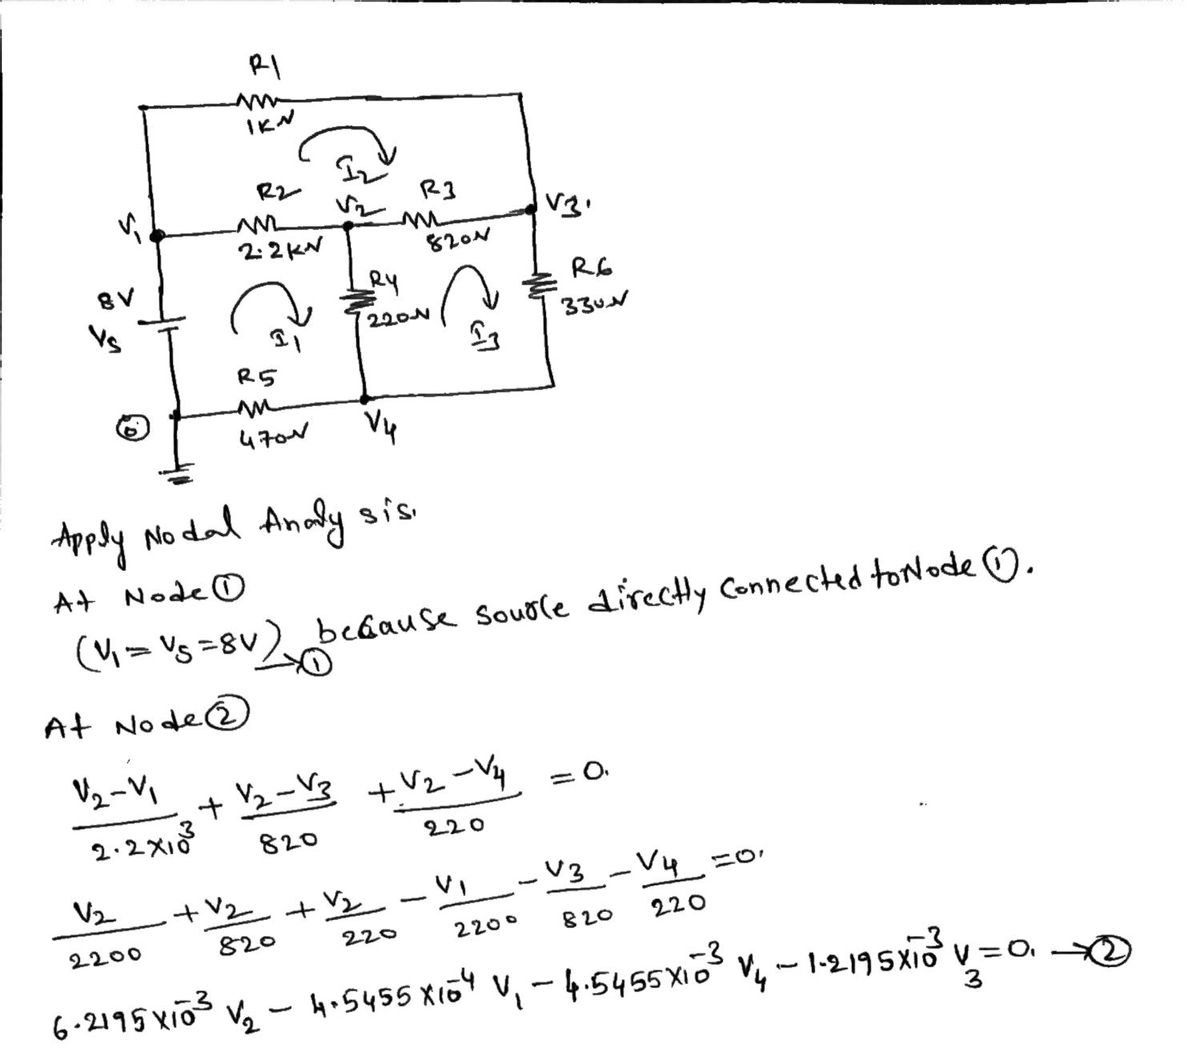 R1
1KΩ
I2
R2
V2
R3
V1
2.2KΩ
820Ω
V3.
8V
Vs
R4
220Ω
R6
330Ω
I1
I3
R5
470Ω
0
V4
Apply Nodal Analysis.
At Node ①
(V1 = Vs = 8V) → ① because source directly connected to Node ①.
At Node ②
(V2-V1)/(2.2×10^3) + (V2-V3)/820 + (V2-V4)/220 = 0.
V2/2200 + V2/820 + V2/220 - V1/2200 - V3/820 - V4/220 = 0.
6.2195×10^-3 V2 - 4.5455×10^-4 V1 - 4.5455×10^-3 V4 - 1.2195×10^-3 V3 = 0. → ②